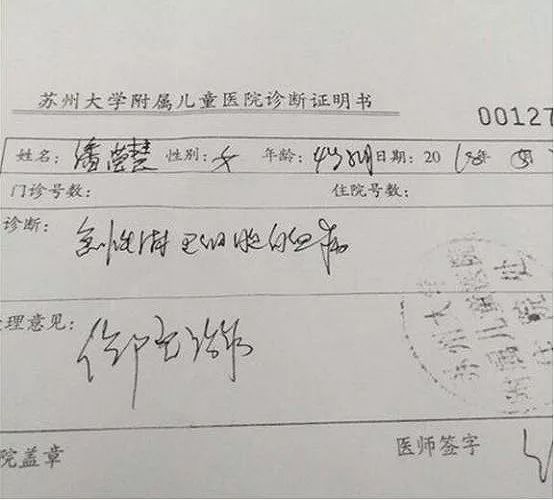 苏州大学附属儿童医院诊断证明书
00127
姓名：潘莹慧 性别：女 年龄：4岁 月 日期：2018年 月
门诊号数： 住院号数：
诊断： 急性淋巴细胞白血病
理意见： 住院治疗
苏州大学
附属儿童医院
院盖章 医师签字